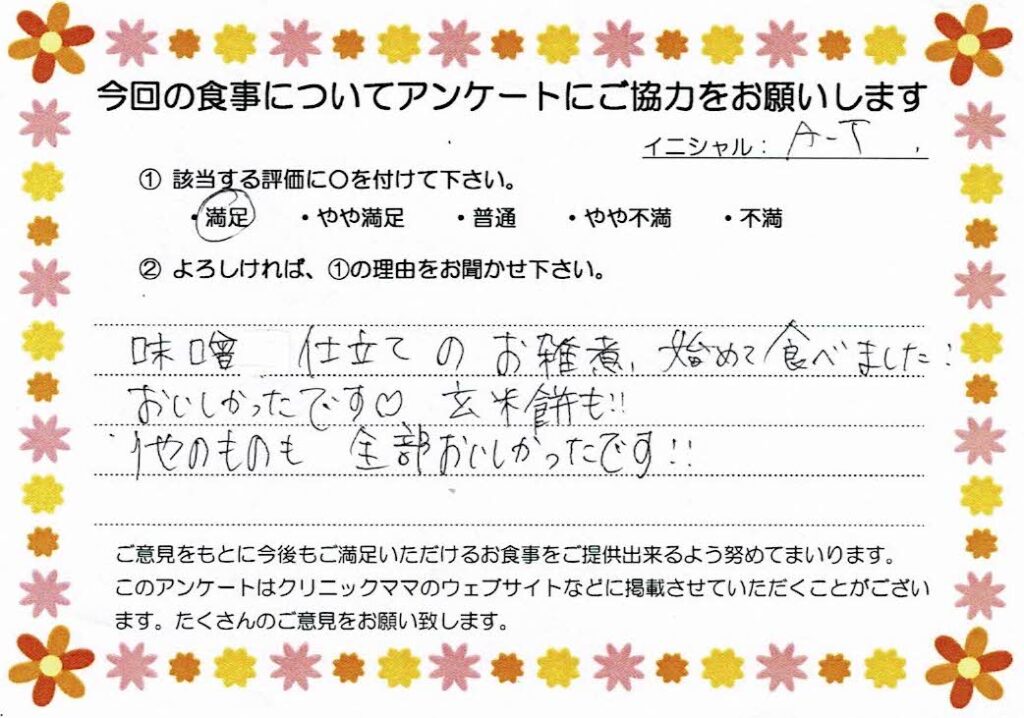 今回の食事についてアンケートにご協力をお願いします
イニシャル： A-T
① 該当する評価に〇を付けて下さい。
・満足 ・やや満足 ・普通 ・やや不満 ・不満
② よろしければ、①の理由をお聞かせ下さい。
味噌 仕立てのお雑煮、始めて食べました!
おいしかったです♡ 玄米餅も!!
他のものも 全部おいしかったです!!
ご意見をもとに今後もご満足いただけるお食事をご提供出来るよう努めてまいります。
このアンケートはクリニックママのウェブサイトなどに掲載させていただくことがござい
ます。たくさんのご意見をお願い致します。